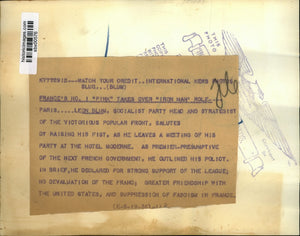 historicimages.com
KYYYRYS---WATCH YOUR CREDIT..INTERNATIONAL NEWS PHOTOS
SLUG...(BLUM)
FRANCE'S NO. 1 "PINK" TAKES OVER "IRON MAN" ROLE
PARIS.....LEON BLUM, SOCIALIST PARTY HEAD AND STRATEGIST
OF THE VICTORIOUS POPULAR FRONT, SALUTES
BY RAISING HIS FIST, AS HE LEAVES A MEETING OF HIS
PARTY AT THE HOTEL MODERNE. AS PREMIER-PRESUMPTIVE
OF THE NEXT FRENCH GOVERNMENT, HE OUTLINED HIS POLICY.
IN BRIEF, HE DECLARED FOR STRONG SUPPORT OF THE LEAGUE;
NO DEVALUATION OF THE FRANC; GREATER FRIENDSHIP WITH
THE UNITED STATES, AND SUPPRESSION OF FASCISM IN FRANCE